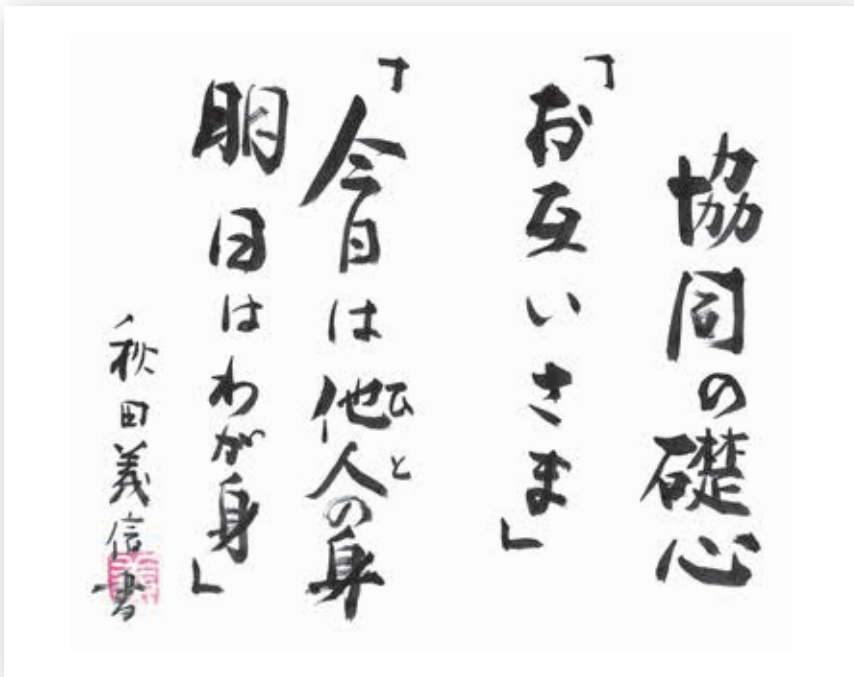 協同の礎心
「お互いさま」
「今日は他人の身
ひと
明日はわが身」
秋田義信書